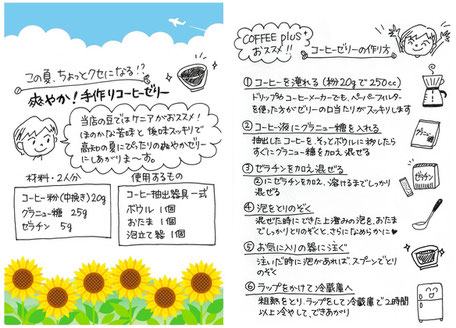 この夏、ちょっとクセになる!?
爽やか!手作りコーヒーゼリー
当店の豆ではケニアがおススメ!
ほのかな苦味と後味スッキリで
高知の夏にぴったりの爽やかゼリー
にしあがりま〜す。
材料・2人分
コーヒー粉(中挽き)20g
グラニュー糖 25g
ゼラチン 5g
使用するもの
コーヒー抽出器具一式
ボウル 1個
おたま 1個
泡立て器 1個
COFFEE plus
おススメ!!
コーヒーゼリーの作り方
①コーヒーを淹れる(粉20gで250cc)
ドリップorコーヒーメーカーでも、ペーパーフィルター
を使った方がゼリーの口当たりがスッキリします
②コーヒー液にグラニュー糖を入れる
抽出したコーヒーを、そっとボウルに移したら
すぐにグラニュー糖を加え混ぜる
グラニュー糖
③ゼラチンを加え混ぜる
②にゼラチンを加え、溶けるまでしっかり
混ぜる
ゼラチン
④泡をとりのぞく
混ぜた時にできた上澄みの泡を、おたま
でしっかりとりのぞくと、さらになめらかに♥
⑤お気に入りの器に注ぐ
注いだ時に泡があれば、スプーンでとり
のぞく
⑥ラップをかけて冷蔵庫へ
粗熱をとり、ラップをして冷蔵庫で2時間
以上冷やして、できあがり